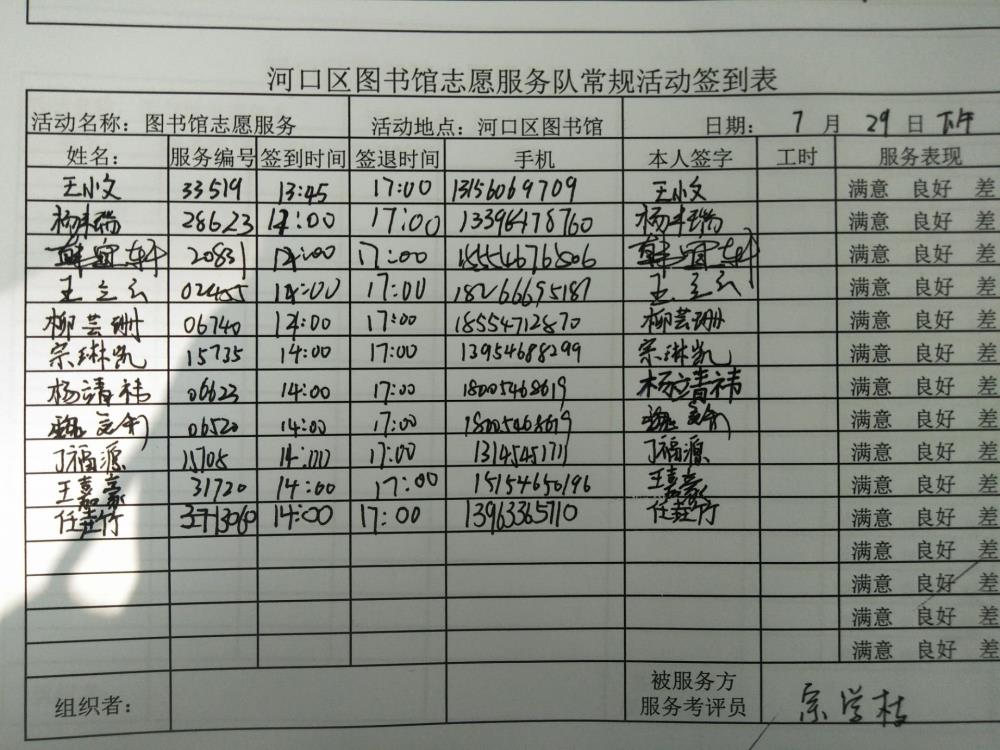 河口区图书馆志愿服务队常规活动签到表
活动名称：图书馆志愿服务 活动地点：河口区图书馆 日期： 7 月 29 日 下午
姓名： 服务编号 签到时间 签退时间 手机 本人签字 工时 服务表现
王小文 33519 13:45 17:00 13156069709 王小文 满意 良好 差
杨丰瑞 28623 14:00 17:00 13396478760 杨丰瑞 满意 良好 差
韩宜轩 20831 14:00 17:00 15554676806 韩宜轩 满意 良好 差
王立云 14:00 17:00 18266695187 王立云 满意 良好 差
柳芸珊 06740 14:00 17:00 18554712870 柳芸珊 满意 良好 差
宗琳凯 15735 14:00 17:00 13954688299 宗琳凯 满意 良好 差
杨靖祎 06623 14:00 17:00 18005468619 杨靖祎 满意 良好 差
06520 14:00 17:00 满意 良好 差
丁福源 15708 14:00 17:00 丁福源 满意 良好 差
王嘉豪 31720 14:00 17:00 15154650196 王嘉豪 满意 良好 差
14:00 17:00 13963365710 满意 良好 差
满意 良好 差
满意 良好 差
满意 良好 差
满意 良好 差
组织者： 被服务方
服务考评员 宗学枝